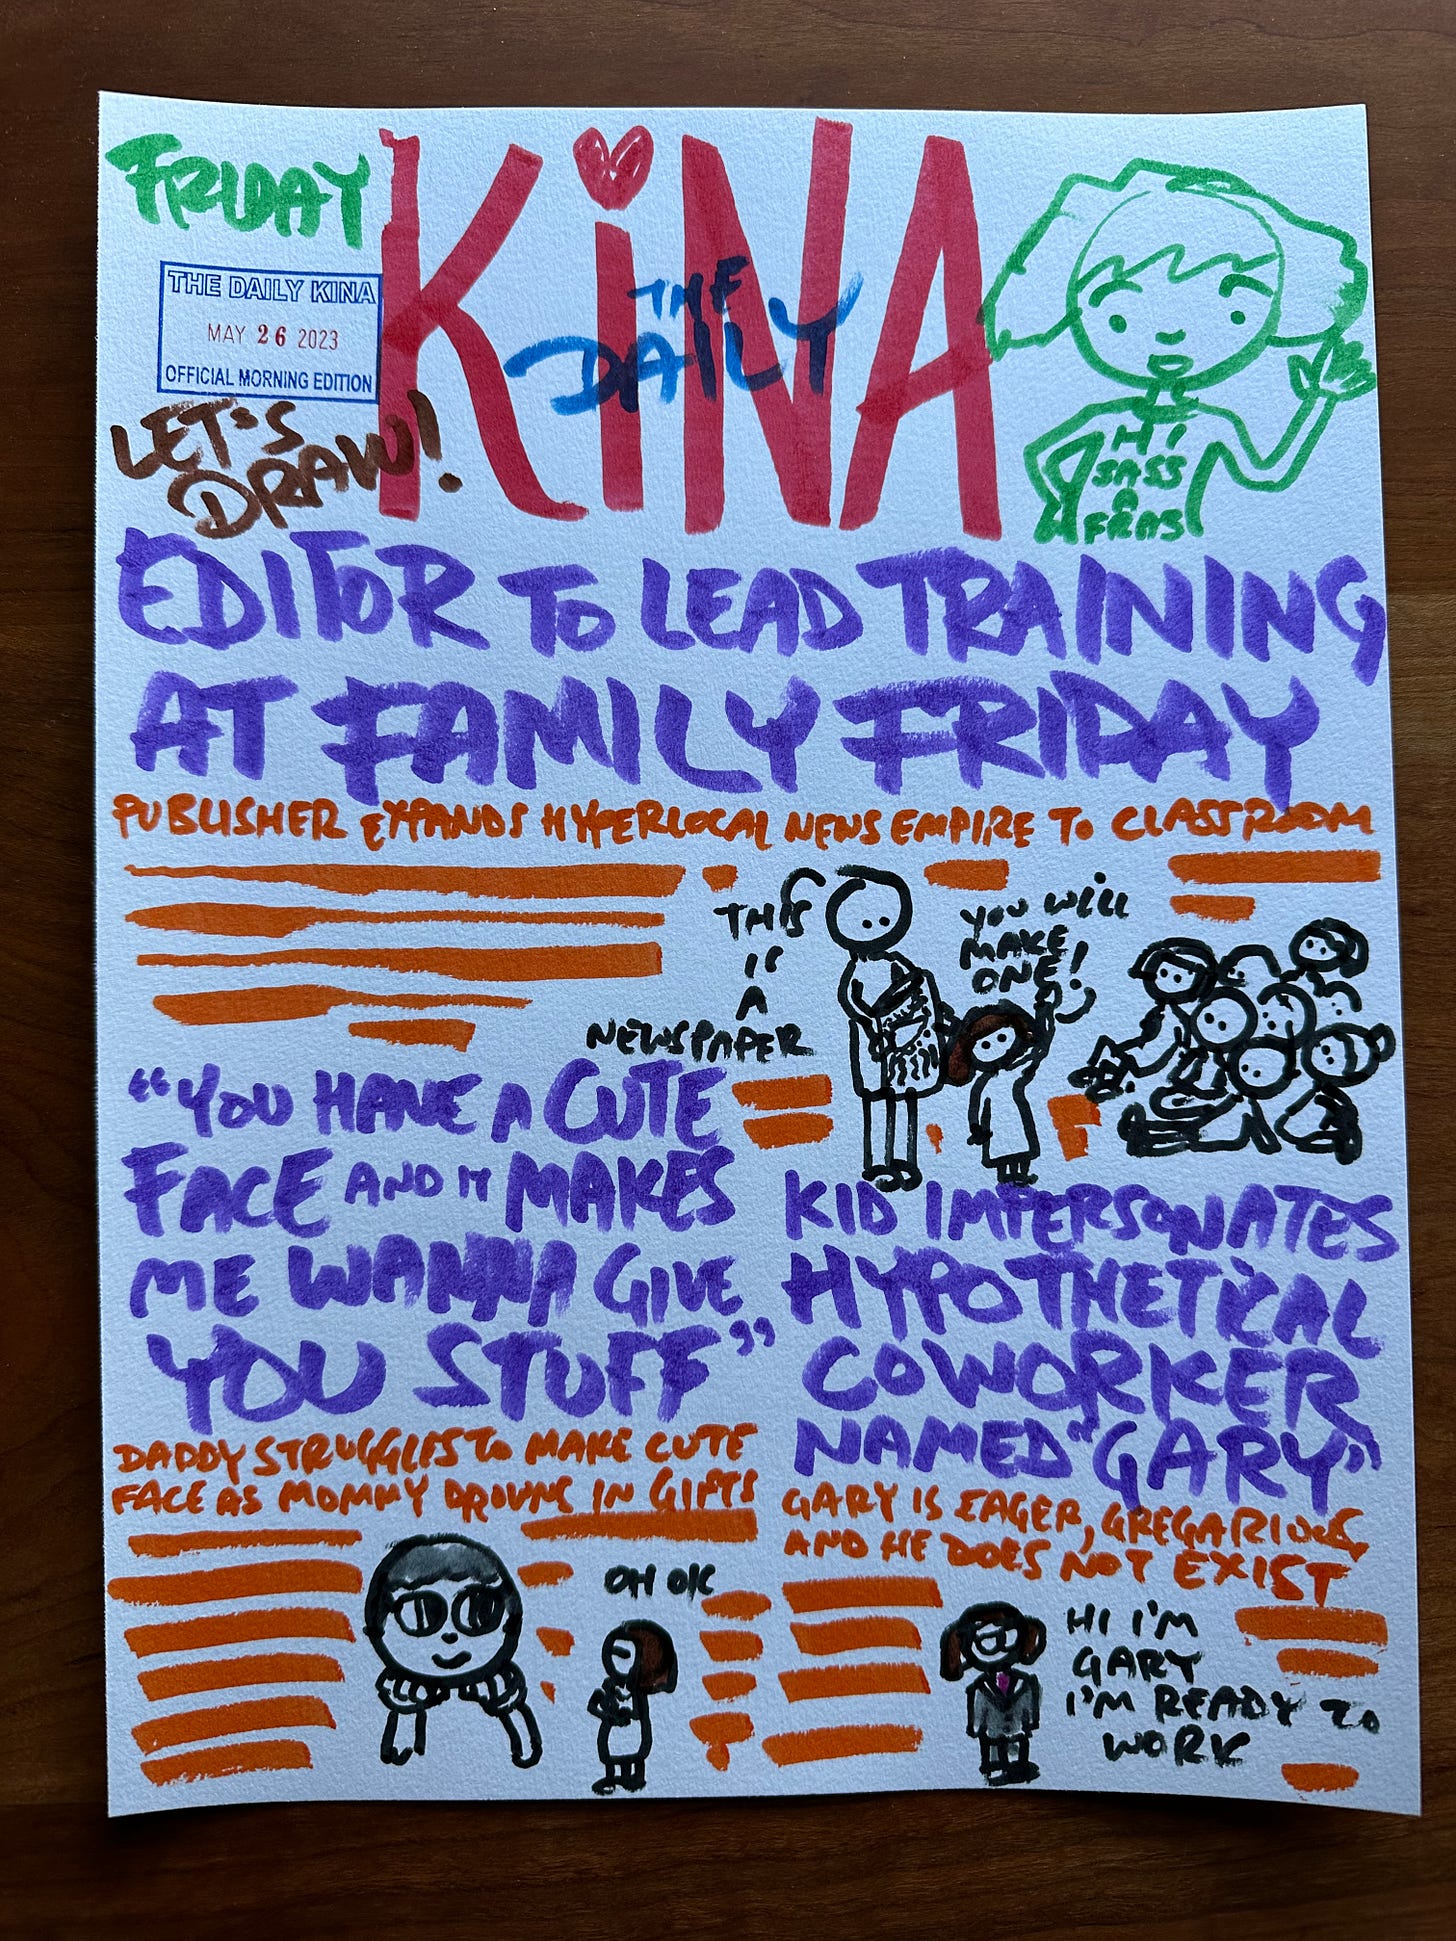 FRIDAY
KiNA
THE
DAILY
THE DAILY KINA
MAY 26 2023
OFFICIAL MORNING EDITION
LET'S
DRAW!
HI
SASS
A
FRAS
EDITOR TO LEAD TRAINING
AT FAMILY FRIDAY
PUBLISHER EXPANDS HYPERLOCAL NEWS EMPIRE TO CLASSROOM
THIS
IS
A
NEWSPAPER
YOU WILL
MAKE
ONE!
"YOU HAVE A CUTE
FACE AND IT MAKES
ME WANNA GIVE
YOU STUFF"
DADDY STRUGGLES TO MAKE CUTE
FACE AS MOMMY DROWNS IN GIFTS
OH OK
KID IMPERSONATES
HYPOTHETICAL
COWORKER
NAMED "GARY"
GARY IS EAGER, GREGARIOUS,
AND HE DOES NOT EXIST
HI I'M
GARY
I'M READY TO
WORK